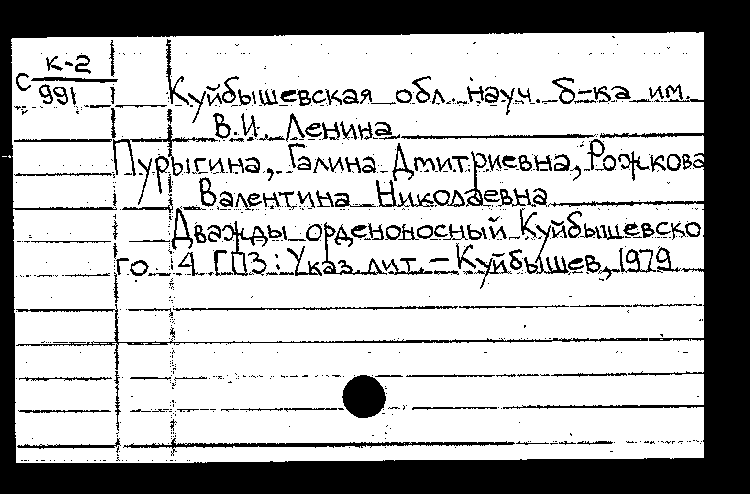 к-2
с
991
Куйбышевская обл. науч. б-ка им.
В.И. Ленина
Пурыгина, Галина Дмитриевна, Рожкова
Валентина Николаевна
Дважды орденоносный Куйбышевско
го 4 ГПЗ: Указ. лит. – Куйбышев, 1979